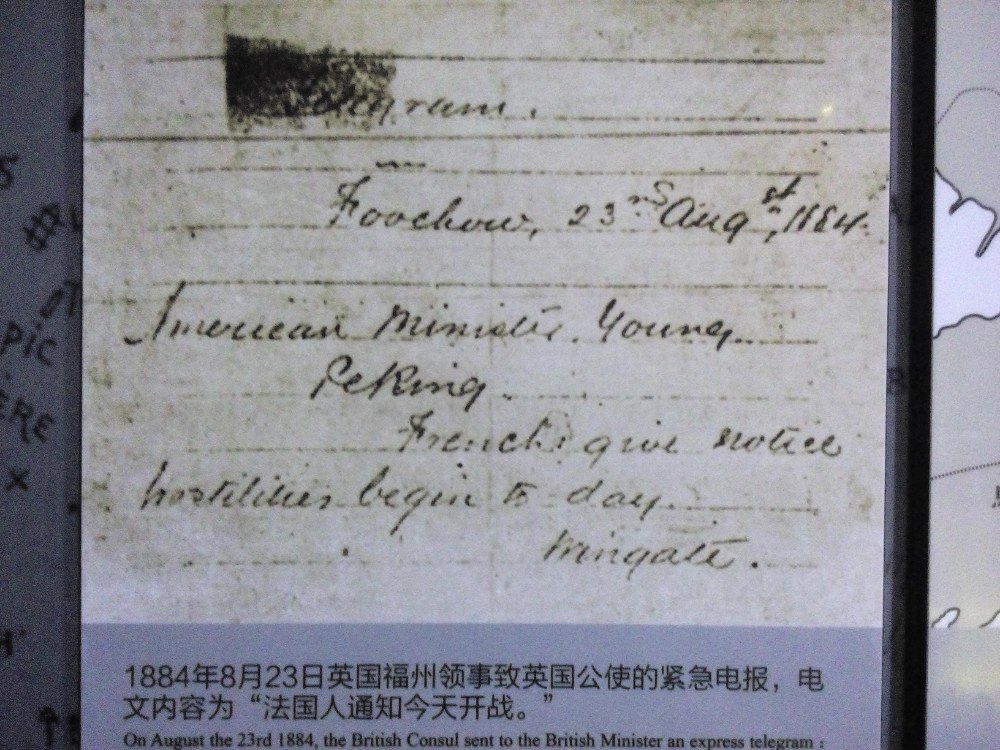 Telegram.
Foochow, 23rd Augst, 1884.
American Minister Young
Peking.
French give notice
hostilities begin to day.
Wingate.
1884年8月23日英国福州领事致英国公使的紧急电报，电
文内容为“法国人通知今天开战。”
On August the 23rd 1884, the British Consul sent to the British Minister an express telegram :
PIC
ERE
X